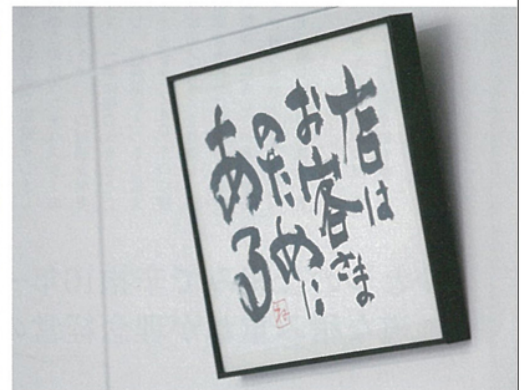 店は
お客さま
のために
ある